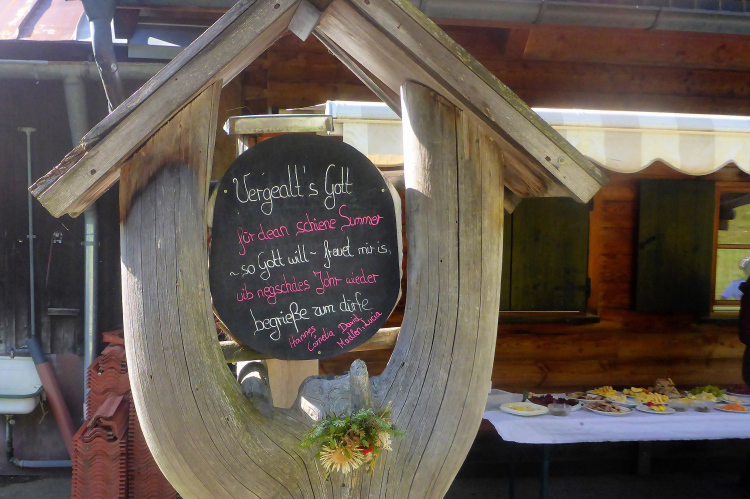 Vergealt's Gott
für dean schiene Summer
~ so Gott will ~ freuet mir is,
uib negschdes Johr wieder
begrieße zum dürfe
Hannes David
Cornelia Madlen Lucia